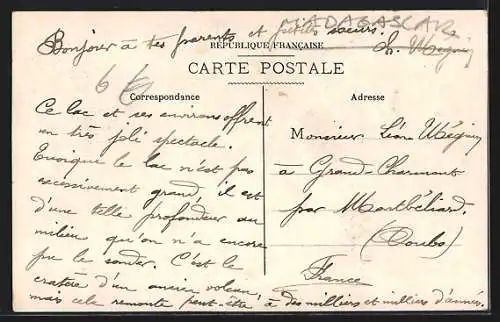 MADAGASCAR
Bonjour à tes parents et petites sœurs.
RÉPUBLIQUE FRANÇAISE
CARTE POSTALE
Correspondance
Adresse
Ce lac et ses environs offrent
un très joli spectacle.
Quoique le lac n'est pas
excessivement grand, il est
d'une telle profondeur au
milieu qu'on n'a encore
pu le sonder. C'est le
cratère d'un ancien volcan,
mais cela remonte peut-être à des milliers et milliers d'années.
Monsieur Léon
à Grand-Charmont
par Montbéliard.
(Doubs)
France